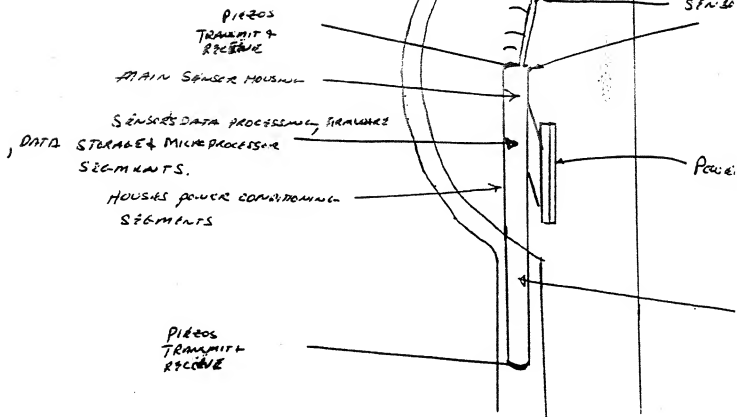 PIEZOS
TRANSMIT &
RECEIVE
SENSE
MAIN SENSER HOUSING
SENSERS DATA PROCESSING, FIRMWARE
, DATA STORAGE & MICROPROCESSOR
SEGMENTS.
POWER
HOUSES POWER CONDITIONING
SEGMENTS
PIEZOS
TRANSMIT &
RECEIVE